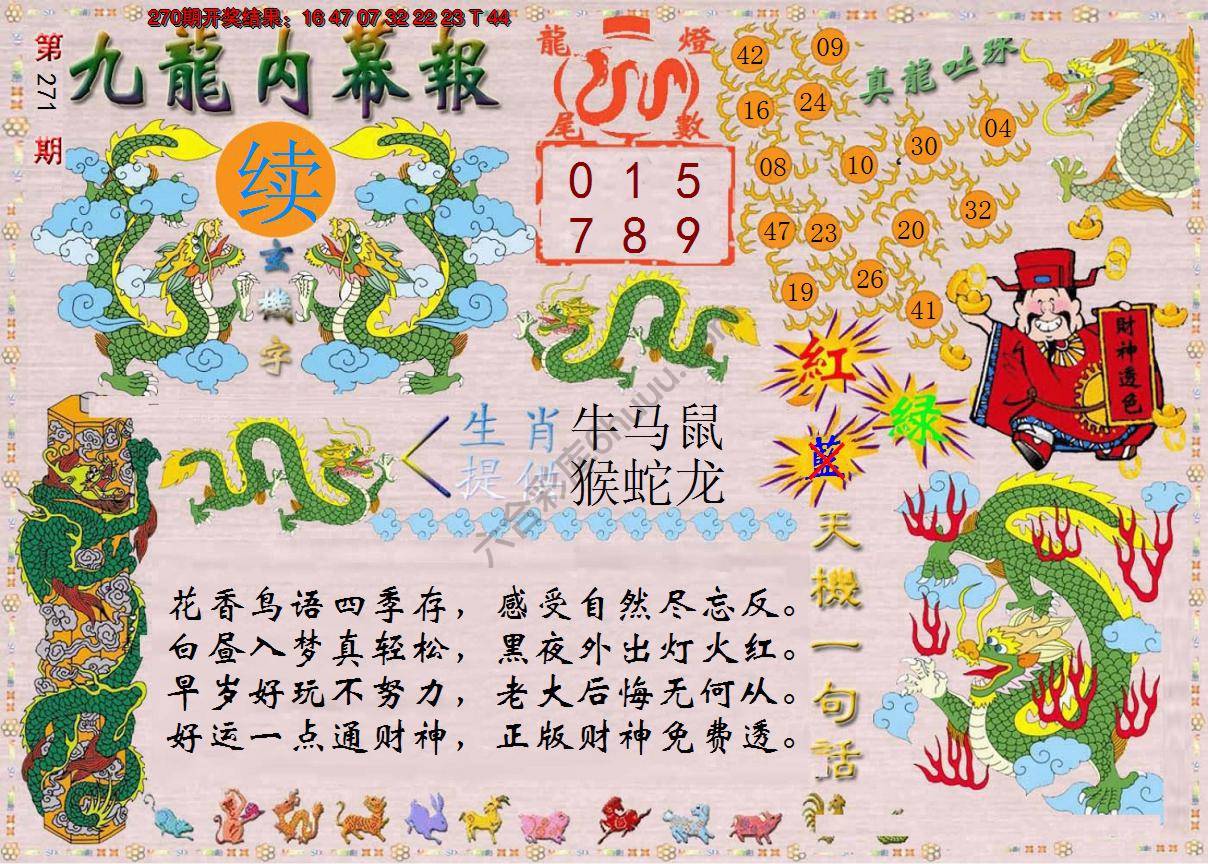 270期开奖结果：16 47 07 32 22 23 T 44
第271期
九龍内幕報
续
玄機字
龍燈
尾數
0 1 5
7 8 9
真龍吐珠
42 09
16 24
30 04
08 10
47 23 20 32
19 26 41
財神透色
紅
綠
藍
生肖 牛马鼠
提供 猴蛇龙
天機一句話
花香鸟语四季存，感受自然尽忘反。
白昼入梦真轻松，黑夜外出灯火红。
早岁好玩不努力，老大后悔无何从。
好运一点通财神，正版财神免费透。